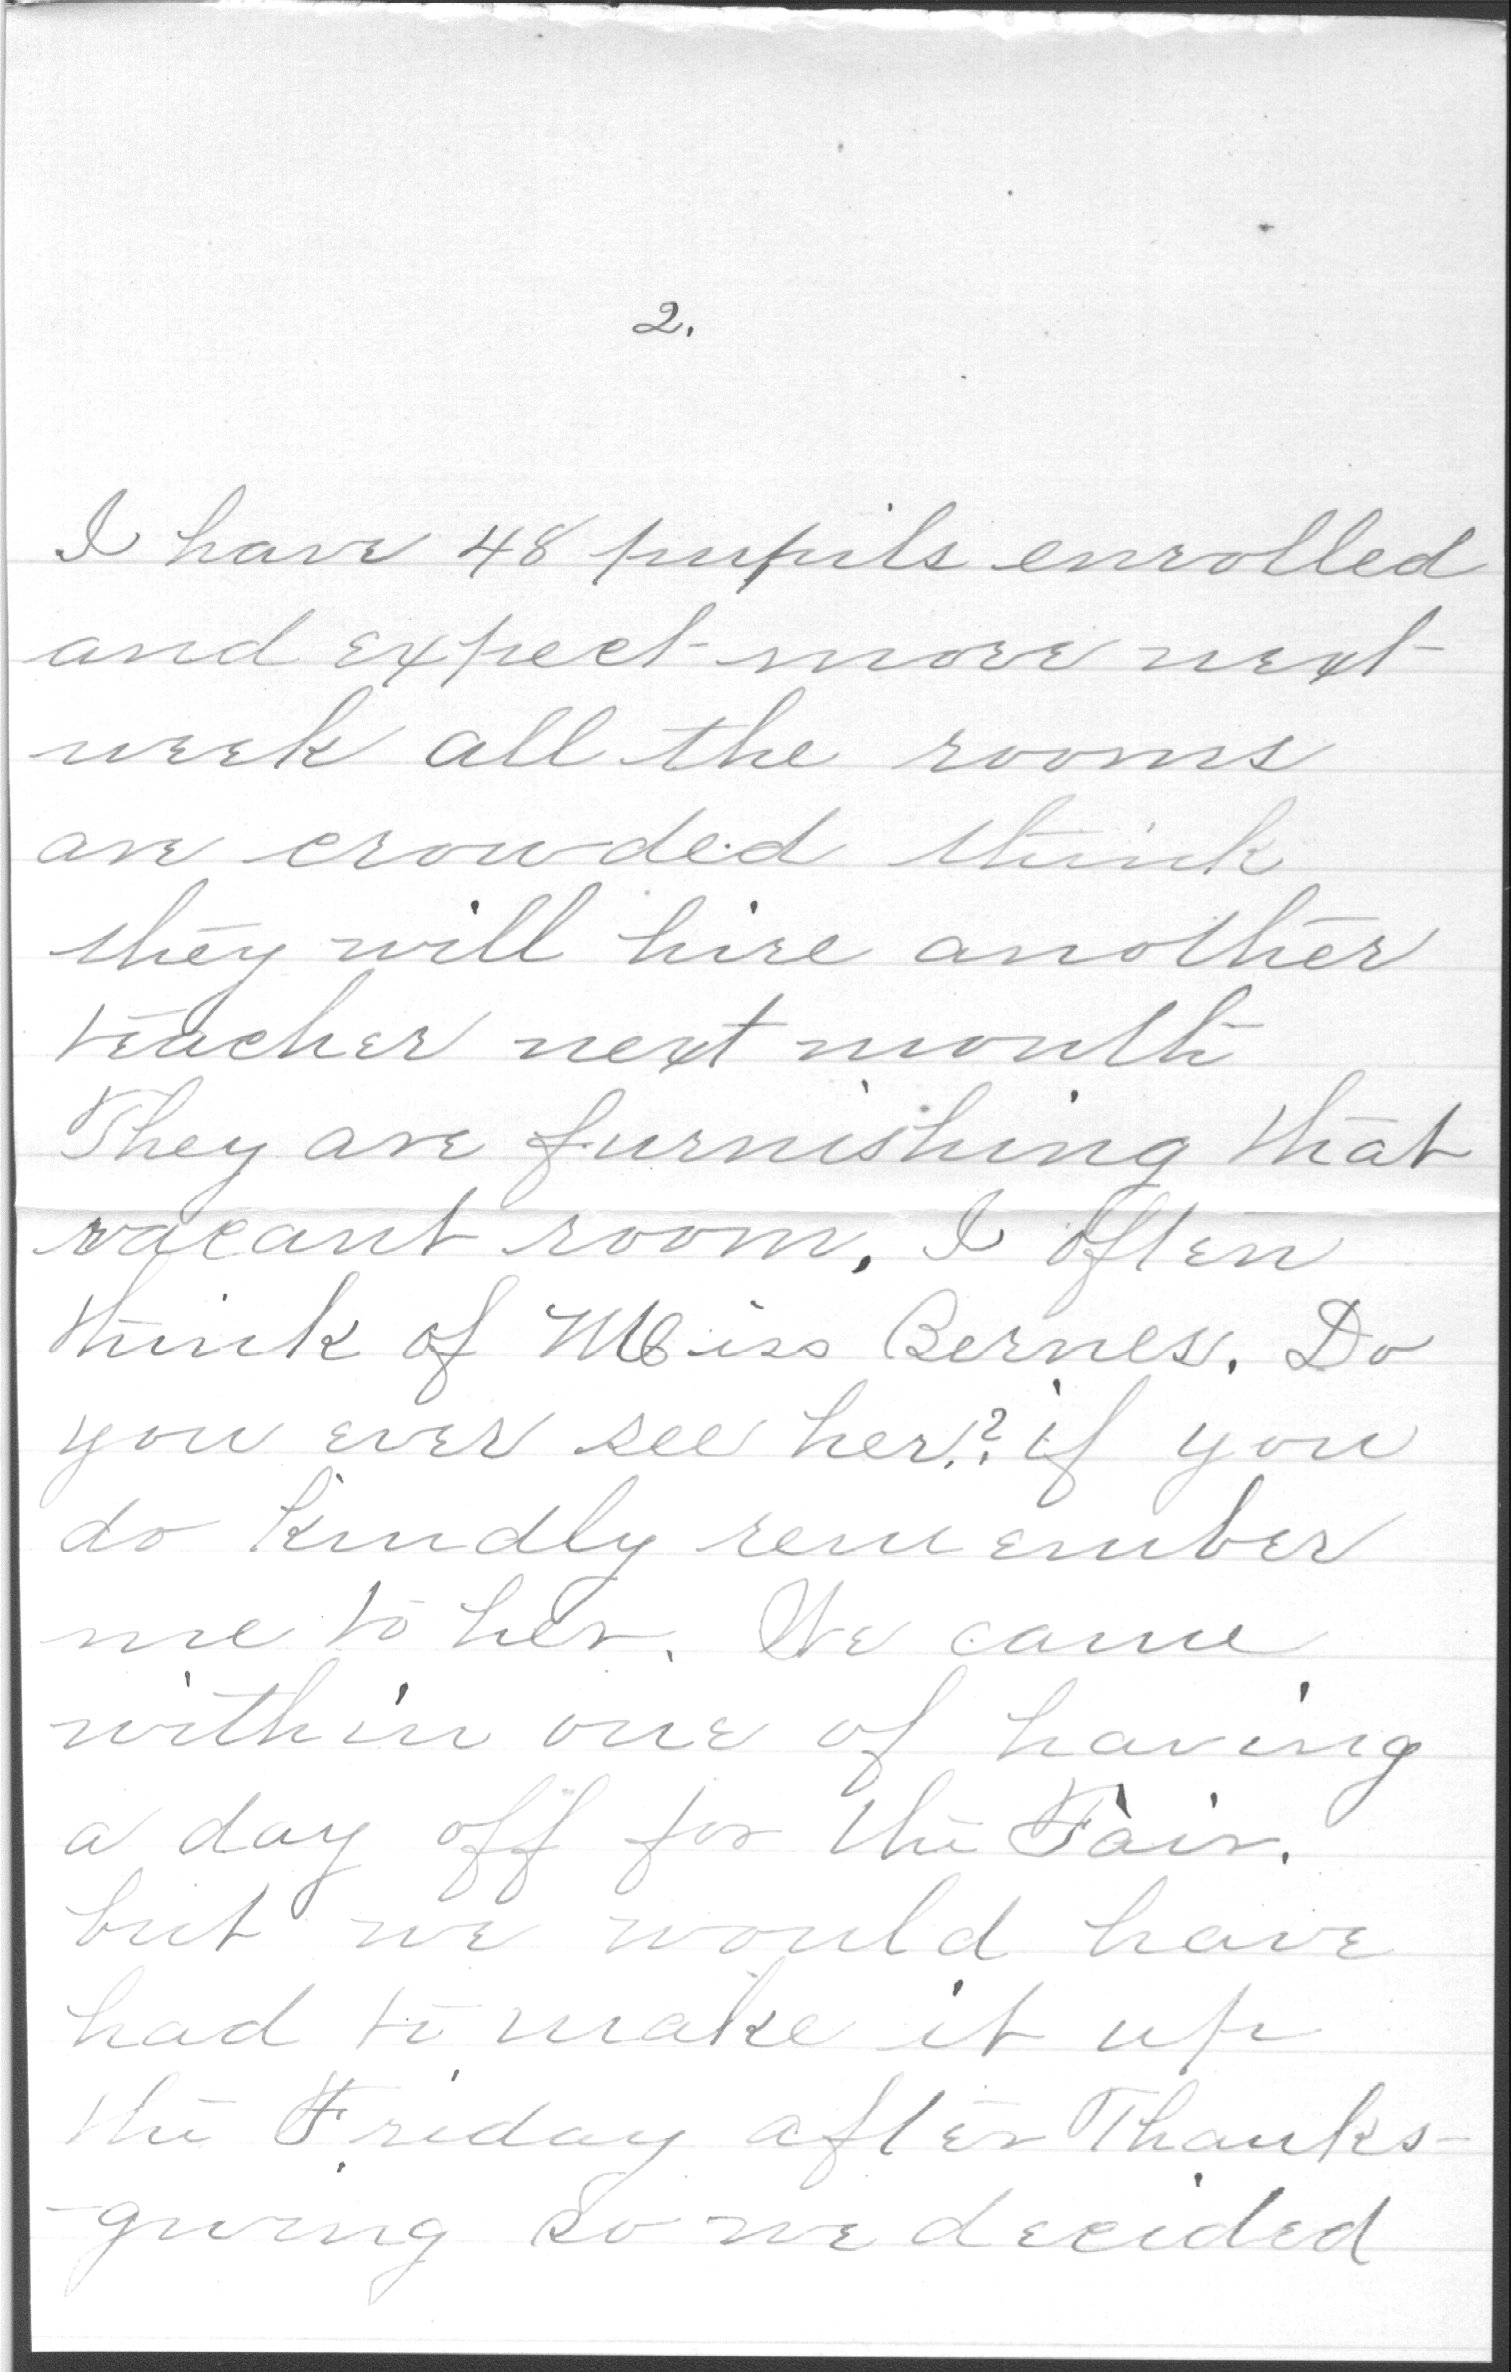 2.
I have 48 pupils enrolled
and expect more next
week all the rooms
are crowded think
they will hire another
teacher next month
They are furnishing that
vacant room. I often
think of Miss Bernes. Do
you ever see her? if you
do kindly remember
me to her. We came
within one of having
a day off for the Fair.
but we would have
had to make it up
the Friday after Thanks-
-giving so we decided